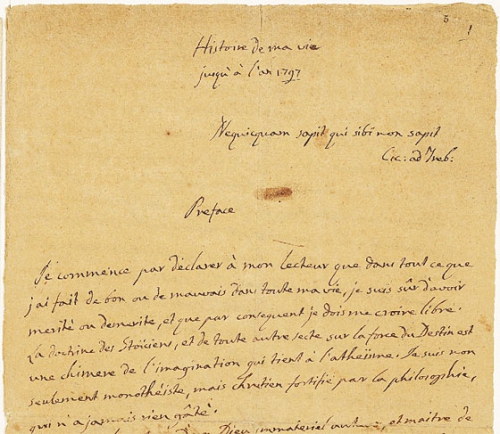 5 1
Histoire de ma vie
jusqu'à l'an 1797
Nequicquam sapit qui sibi non sapit
Cic: ad Treb:
Preface
Je commence par declarer à mon lecteur que dans tout ce que
j'ai fait de bon ou de mauvais dans toute ma vie, je suis sûr d'avoir
merité ou demerité, et que par consequent je dois me croire libre.
La doctrine des Stoïciens, et de toute autre secte sur la force du Destin est
une chimere de l'imagination qui tient à l'atheisme. Je suis non
seulement monothéiste, mais chretien fortifié par la philosophie,
qui n'a jamais rien gâté.
Dieu immateriel et maitre de